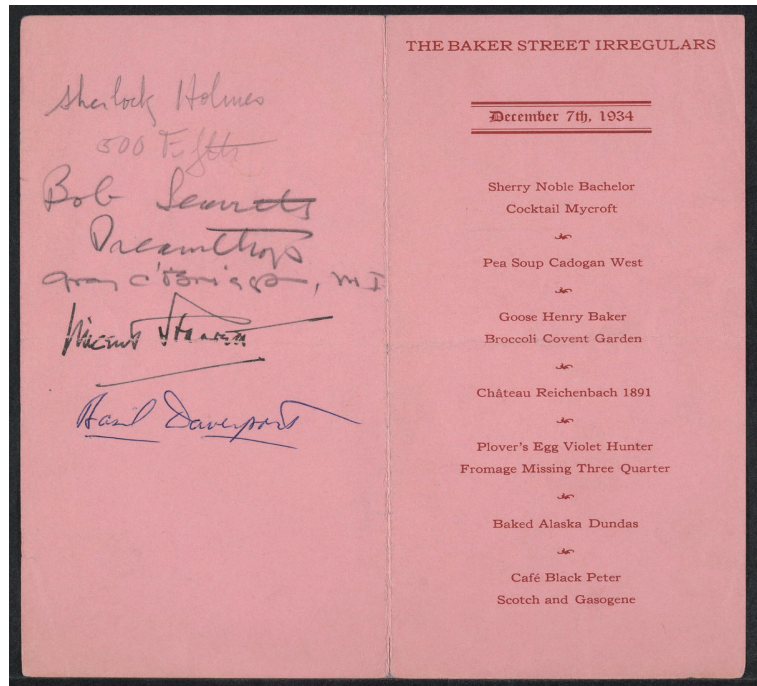 Sherlock Holmes
500 Fifth
Bob
Gray C. Briggs, M.D
Vincent Starrett
Basil Davenport
THE BAKER STREET IRREGULARS
December 7th, 1934
Sherry Noble Bachelor
Cocktail Mycroft
Pea Soup Cadogan West
Goose Henry Baker
Broccoli Covent Garden
Château Reichenbach 1891
Plover's Egg Violet Hunter
Fromage Missing Three Quarter
Baked Alaska Dundas
Café Black Peter
Scotch and Gasogene